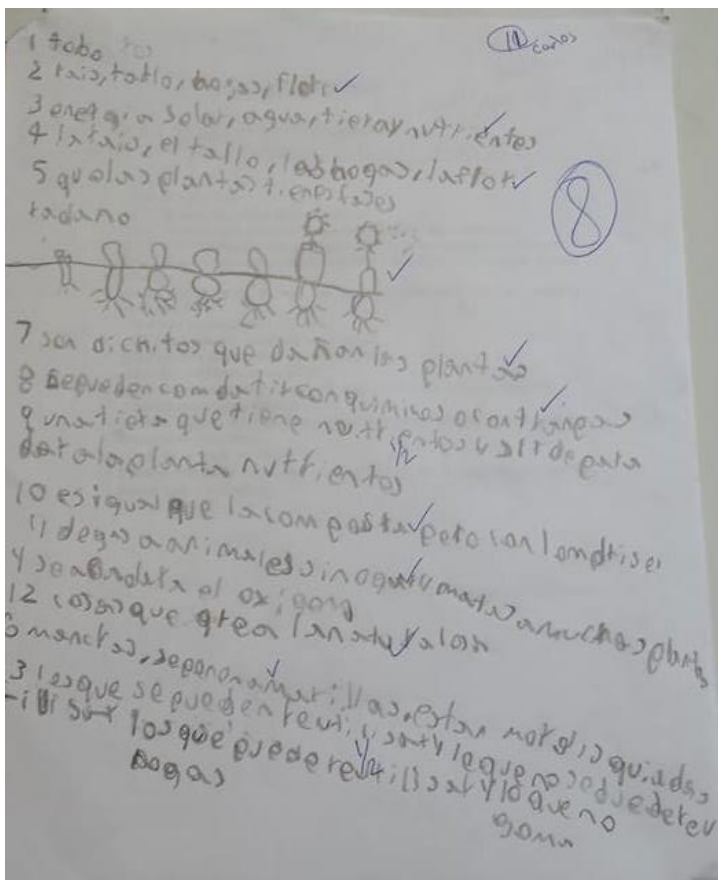 1 tobo
11
2 rais, tallo, bogas, flor
3 energia solar, agua, tiera y nutrientes
4 la rais, el tallo, las bogas, la flor
5 que las plantas tienen fases
8
7 son vichitos que dañan las plantas
8 se pueden comdatir con quimicos o con trampas
9 una tiera que tiene nutrientos y sirde para
1/2
dar a la planta nutrientos
10 es igual que la composta pero con lomdrises
11 dega a animales sin ogar y mata a muchas plantas
y se a el oxigono
12 cosas que grea la naturalesa
manchas, se ponon amarillas, estan mordisquiadas
3 las que se pueden reutilisar y le que no se duede reu
1/2
los que puede reutilisar y lo que no
bogas
goma